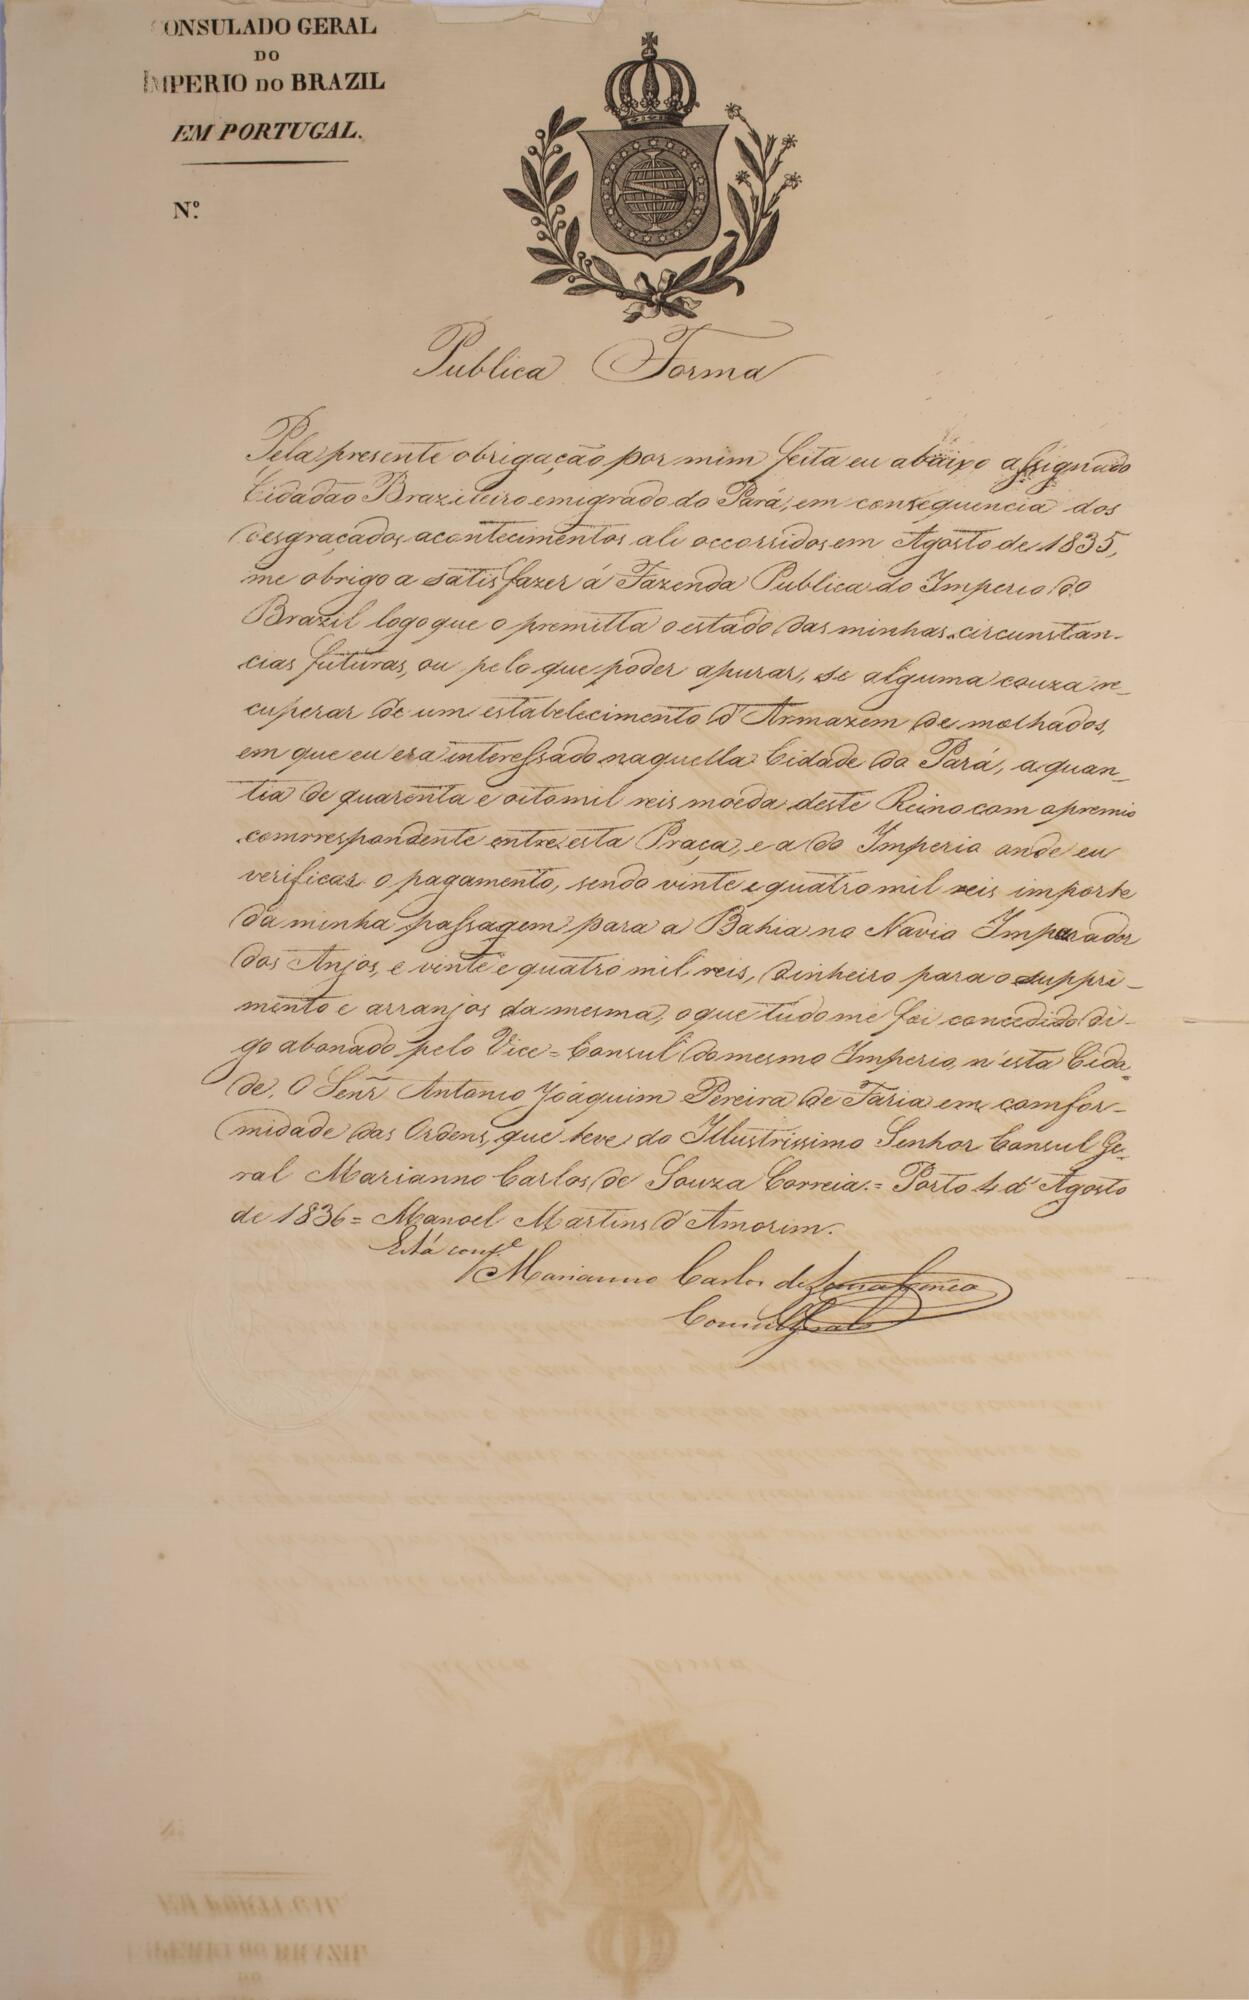 CONSULADO GERAL
DO
IMPERIO DO BRAZIL
EM PORTUGAL.
Nº.
Publica Forma
Pela presente obrigação por mim feita eu abaixo assignado
Cidadão Brazileiro emigrado do Pará, em consequencia dos
desgraçados acontecimentos ali occorridos em Agosto de 1835,
me obrigo a satisfazer á Fazenda Publica do Imperio do
Brazil logo que o premitta o estado das minhas circunstan-
cias futuras, ou pelo que poder apurar, se alguma couza re-
cuperar de um estabelecimento d'Armazem de molhados,
em que eu era interessado naquella Cidade do Pará, a quan-
tia de quarenta e oito mil reis moeda deste Reino com o premio
comrrespondente entre esta Praça, e a do Imperio onde eu
verificar o pagamento, sendo vinte e quatro mil reis importe
da minha passagem para a Bahia no Navio Imperador
dos Anjos, e vinte e quatro mil reis, dinheiro para o suppri-
mento e arranjos da mesma, o que tudo me foi concedido di-
go abonado pelo Vice=Consul do mesmo Imperio n'esta Cida-
de, O Senr Antonio Joáquim Pereira de Faria em comfor-
midade das Ordens, que teve do Illustrissimo Senhor Consul Ge-
ral Marianno Carlos de Souza Correia.= Porto 4 d'Agosto
de 1836= Manoel Martins d'Amorim.
Está conf.e
Marianno Carlos de Souza Corrêa
Consul Geral